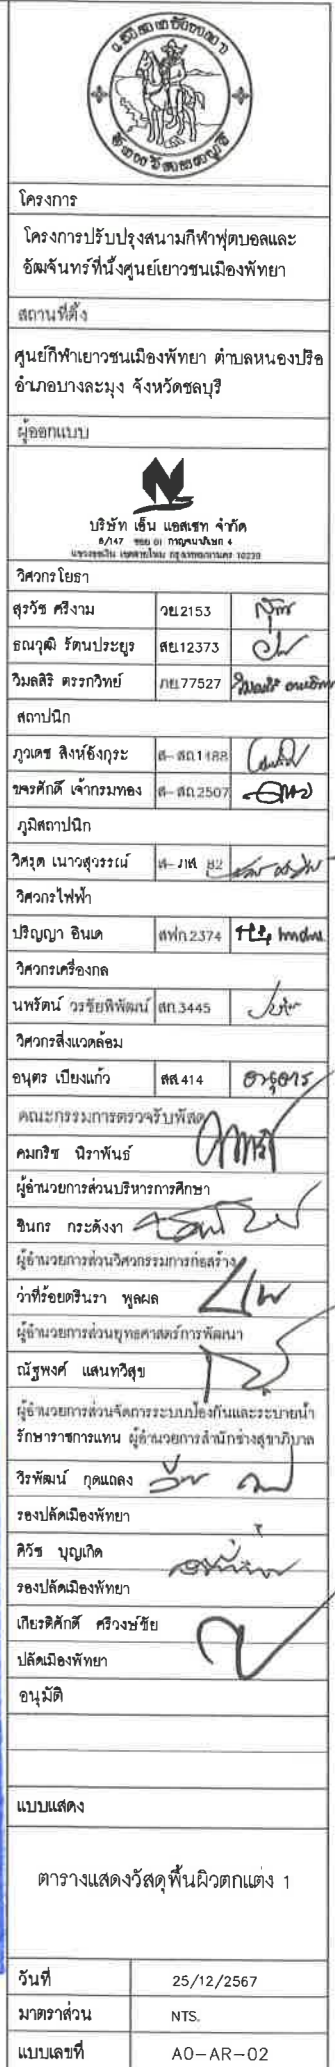 เมืองพัทยา
จังหวัดชลบุรี
โครงการ
โครงการปรับปรุงสนามกีฬาฟุตบอลและ
อัฒจันทร์ที่นั่งศูนย์เยาวชนเมืองพัทยา
สถานที่ตั้ง
ศูนย์กีฬาเยาวชนเมืองพัทยา ตำบลหนองปรือ
อำเภอบางละมุง จังหวัดชลบุรี
ผู้ออกแบบ
บริษัท เอ็น แอสเซท จำกัด
8/147 ซอย 01 กาญจนาภิเษก 4
10220
วิศวกรโยธา
สุรวัช ศรีงาม วย.2153
ธณวุฒิ รัตนประยูร สย.12373
วิมลสิริ ตรรกวิทย์ ภย.77527
สถาปนิก
ภูวเดช สิงห์อังกุระ ส-สถ.1488
ขจรศักดิ์ เจ้ากรมทอง ส-สถ.2507
ภูมิสถาปนิก
วิศรุต เนาวสุวรรณ์ ส-ภส 82
วิศวกรไฟฟ้า
ปริญญา อินเด สฟก.2374
วิศวกรเครื่องกล
นพรัตน์ วรชัยพิพัฒน์ สก.3445
วิศวกรสิ่งแวดล้อม
อนุตร เปียงแก้ว สส.414
คณะกรรมการตรวจรับพัสดุ
คมกริช นิราพันธ์
ผู้อำนวยการส่วนบริหารการศึกษา
ชินกร กระดังงา
ผู้อำนวยการส่วนวิศวกรรมการก่อสร้าง
ว่าที่ร้อยตรีนรา พูลผล
ผู้อำนวยการส่วนยุทธศาสตร์การพัฒนา
ณัฐพงศ์ แสนทวีสุข
ผู้อำนวยการส่วนจัดการระบบป้องกันและระบายน้ำ
รักษาราชการแทน ผู้อำนวยการสำนักช่างสุขาภิบาล
วิรพัฒน์ กุดแถลง
รองปลัดเมืองพัทยา
ศิวัช บุญเกิด
รองปลัดเมืองพัทยา
เกียรติศักดิ์ ศรีวงษ์ชัย
ปลัดเมืองพัทยา
อนุมัติ
แบบแสดง
ตารางแสดงวัสดุพื้นผิวตกแต่ง 1
วันที่ 25/12/2567
มาตราส่วน NTS.
แบบเลขที่ A0-AR-02